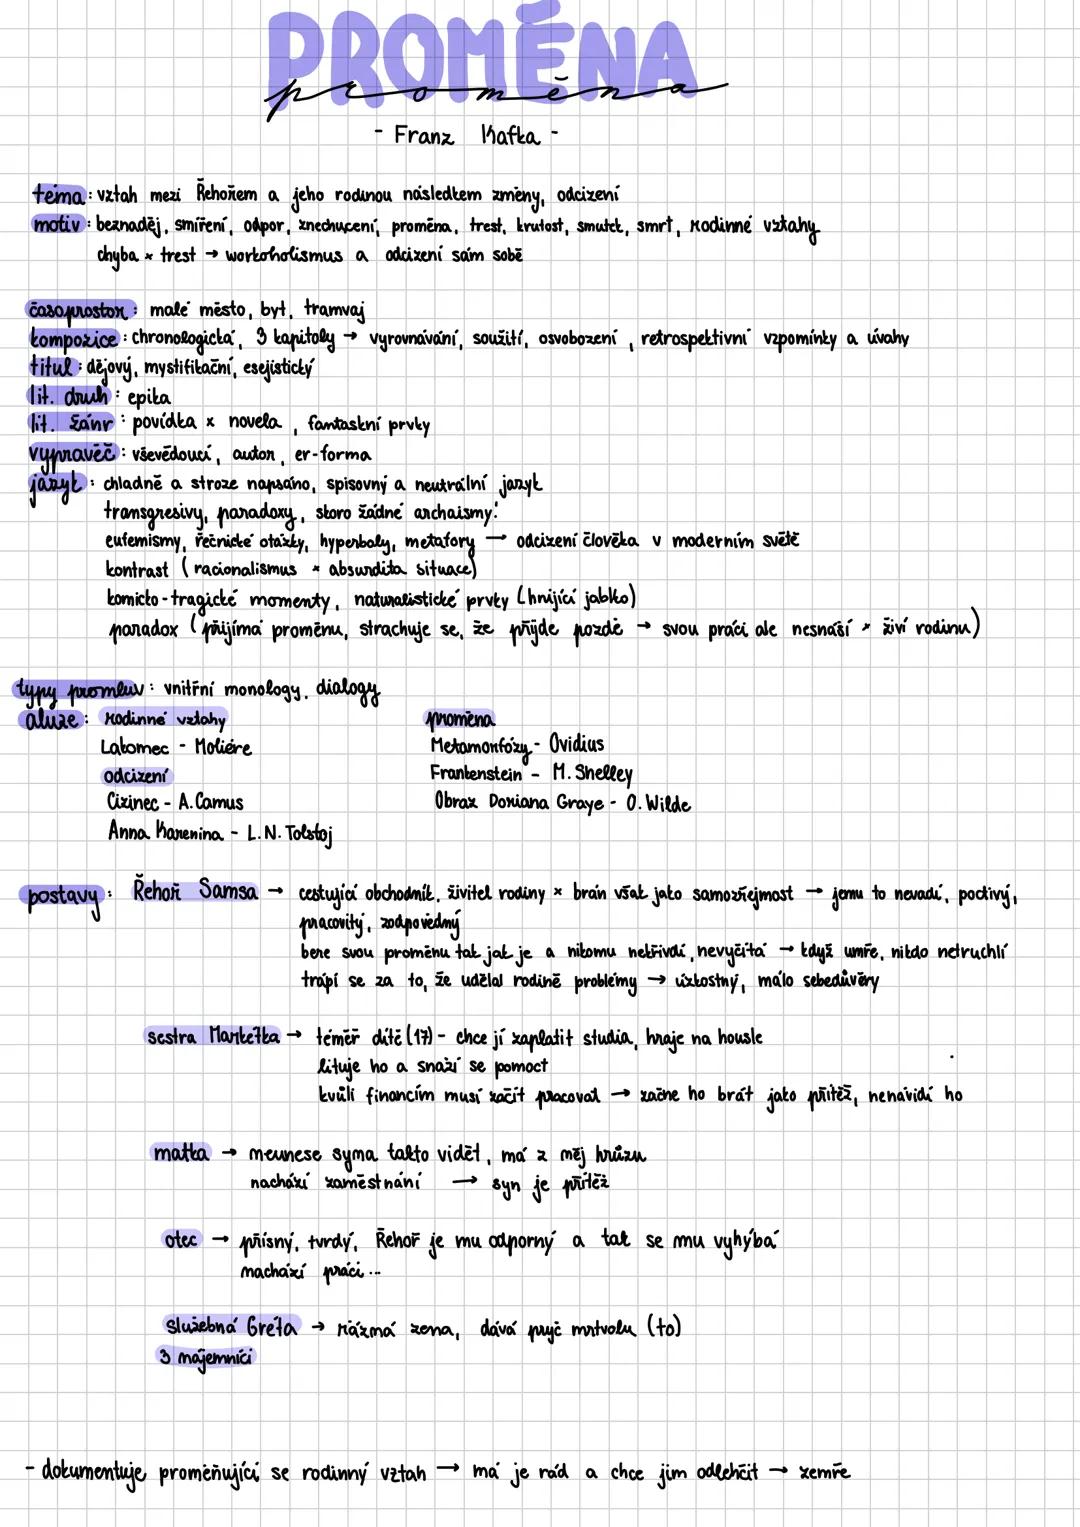 PROMĚNA
proměna
- Franz Kafka -
téma: vztah mezi Řehořem a jeho rodinou následkem změny, odcizení
motiv: beznaděj, smíření, odpor, znechucení, proměna, trest, krutost, smutek, smrt, rodinné vztahy
chyba × trest → workoholismus a odcizení sám sobě
časoprostor: malé město, byt, tramvaj
kompozice: chronologická, 3 kapitoly → vyrovnávání, soužití, osvobození, retrospektivní vzpomínky a úvahy
titul: dějový, mystifikační, esejistický
lit. druh: epika
lit. žánr: povídka × novela, fantaskní prvky
vypravěč: vševědoucí, autor, er-forma
jazyk: chladně a stroze napsáno, spisovný a neutrální jazyk
transgresivy, paradoxy, skoro žádné archaismy!
eufemismy, řečnické otázky, hyperboly, metafory → odcizení člověka v moderním světě
kontrast (racionalismus × absurdita situace)
komicko-tragické momenty, naturalistické prvky (hnijící jablko)
paradox (přijímá proměnu, strachuje se, že přijde pozdě → svou práci ale nesnáší × živí rodinu)
typy promluv: vnitřní monology, dialogy
aluze: rodinné vztahy
Lakomec - Moliére
odcizení
Cizinec - A. Camus
Anna Karenina - L. N. Tolstoj
proměna
Metamorfózy - Ovidius
Frankenstein - M. Shelley
Obraz Doriana Graye - O. Wilde
postavy: Řehoř Samsa → cestující obchodník, živitel rodiny × brán však jako samozřejmost → jemu to nevadí, poctivý,
pracovitý, zodpovědný
bere svou proměnu tak jak je a nikomu nekřivdí, nevyčítá → když umře, nikdo netruchlí
trápí se za to, že udělal rodině problémy → úzkostný, málo sebedůvěry
sestra Markétka → téměř dítě (17) - chce jí zaplatit studia, hraje na housle
lituje ho a snaží se pomoct
kvůli financím musí začít pracovat → začne ho brát jako přítěž, nenávidí ho
matka → neunese syna takto vidět, má z něj hrůzu
nachází zaměstnání → syn je přítěž
otec → přísný, tvrdý, Řehoř je mu odporný a tak se mu vyhýbá
nachází práci...
služebná Gréta → rázná žena, dává pryč mrtvolu (to)
3 nájemníci
- dokumentuje proměňující se rodinný vztah → má je rád a chce jim odlehčit → zemře